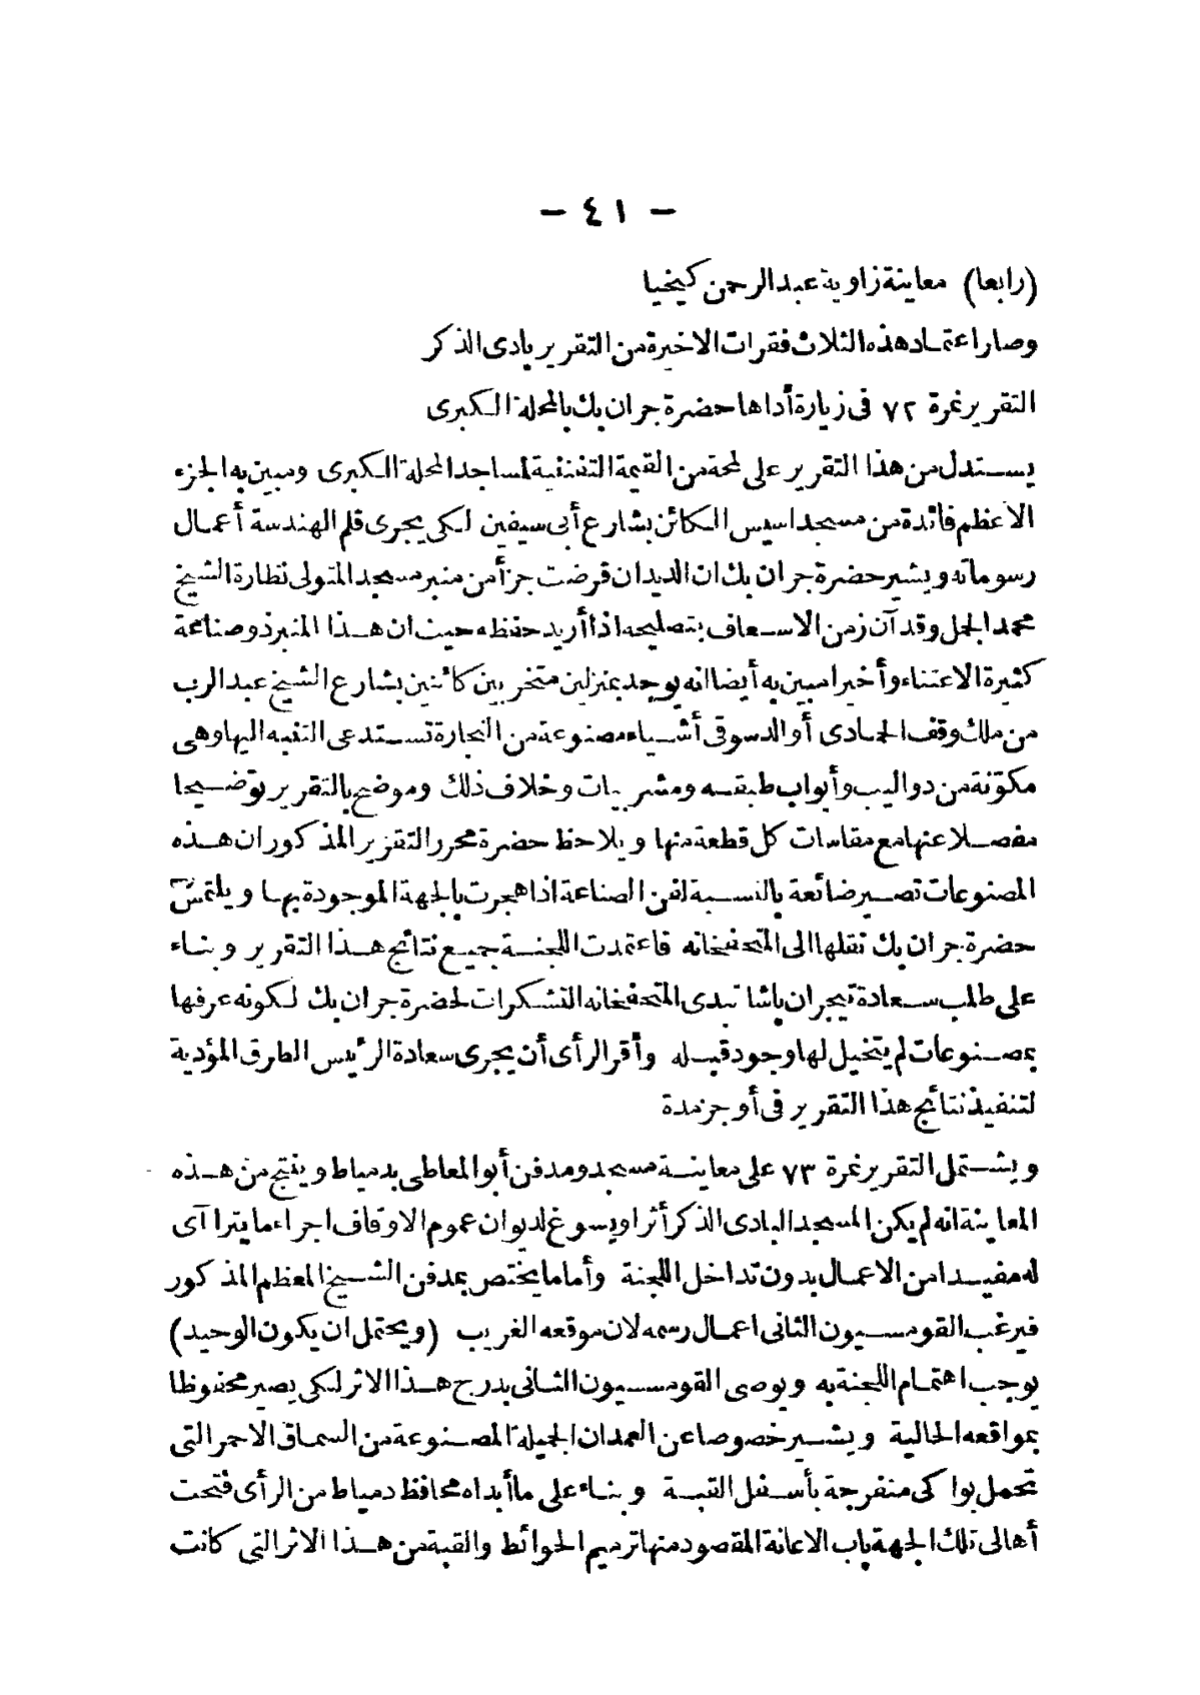 — ٤١ —
(رابعا) معاينة زاوية عبد الرحمن كيخيا
وصار اعتماد هذه الثلاث فقرات الاخيرة من التقرير بادى الذكر
التقرير نمرة ٧٢ فى زيارة أداها حضرة جران بك بالمحلة الكبرى
يستدل من هذا التقرير على لمحة من القيمة التفننية لمساجد المحلة الكبرى ومبين به الجزء
الاعظم فائدة من مسجد اسيس الكائن بشارع أبى سيفين لكى يجرى قلم الهندسة أعمال
رسوماته ويشير حضرة جران بك ان الديدان قرضت جزأ من منبر مسجد المتولى نظارة الشيخ
محمد الجمل وقد آن زمن الاسعاف بتصليحه اذا أريد حفظه حيث ان هذا المنبر ذو صناعة
كثيرة الاعتناء وأخيرا مبين به أيضا انه يوجد بمنزلين متخربين كائنين بشارع الشيخ عبد الرب
من ملك وقف الحمادى أو الدسوقى أشياء مصنوعة من النجارة تستدعى التنبه اليها وهى
مكوّنة من دواليب وأبواب طبقسه ومشربيات وخلاف ذلك وموضح بالتقرير توضيحا
مفصلا عنها مع مقاسات كل قطعة منها ويلاحظ حضرة محرر التقرير المذكور ان هذه
المصنوعات تصير ضائعة بالنسبة لفن الصناعة اذا هجرت بالجهة الموجودة بها ويلتمس
حضرة جران بك نقلها الى المتحفخانه فاعتمدت اللجنة جميع نتائج هذا التقرير وبناء
على طلب سعادة تيجران باشا تبدى المتحفخانه التشكرات لحضرة جران بك لكونه عرفها
بمصنوعات لم يتخيل لها وجود قبله وأقر الرأى أن يجرى سعادة الرئيس الطرق المؤدية
لتنفيذ نتائج هذا التقرير فى أوجز مدة
ويشتمل التقرير نمرة ٧٣ على معاينة مسجد ومدفن أبو المعاطى بدمياط وينتج من هذه
المعاينة انه لم يكن المسجد البادى الذكر أثرا ويسوغ لديوان عموم الاوقاف اجراء ما يترا آى
له مفيدا من الاعمال بدون تداخل اللجنة وأما ما يختص بمدفن الشيخ المعظم المذكور
فيرغب القومسيون الثانى اعمال رسمه لان موقعه الغريب (ويحتمل ان يكون الوحيد)
يوجب اهتمام اللجنة به ويوصى القومسيون الثانى بدرج هذا الاثر لكى يصير محفوظا
بمواقعه الحالية ويشير خصوصا عن العمدان الجميلة المصنوعة من السماق الاحمر التى
تحمل بوا كى منفرجة بأسفل القبة وبناء على ما أبداه محافظ دمياط من الرأى فتحت
أهالى تلك الجهة باب الاعانة المقصود منها ترميم الحوائط والقبة من هذا الاثر التى كانت